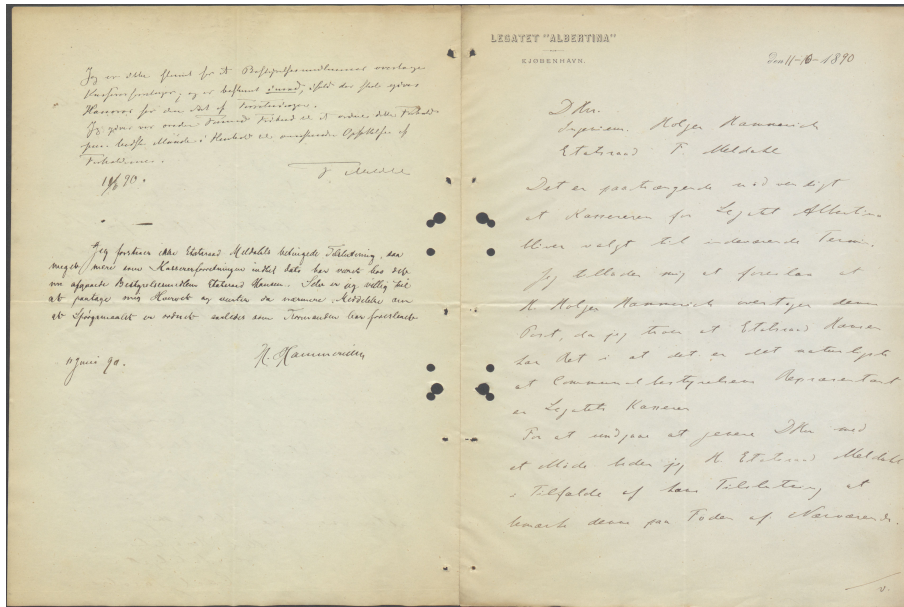 Jeg er ikke stemt for at Bestyrelsesmedlemmer overtager
Kasserer, og er bestemt imod, ifald der skal gives
Honorar for den Art af Forretninger.
Jeg giver
paa bedste Maade i Henhold til
Forholdene.
11/6 90.
F. Meldahl
Jeg forstaaer ikke Etatsraad Meldahls betingede Tilslutning, saa
meget mere som Kassererforretningen indtil dato har været hos det
nu afgaaede Bestyrelsesmedlem Etatsraad Hansen. Selv er jeg villig til
at paatage mig Hvervet og venter da nærmere Meddelelse om
at Spørgsmaalet er ordnet saaledes som Formanden har foreslaaet
11 Juni 90.
H. Hammerich
LEGATET "ALBERTINA"
KJØBENHAVN.
den 11-6-1890
DHrr.
Ingeniør Holger Hammerich
Etatsraad F. Meldahl
Det er paatrængende nødvendigt
at Kassereren for Legatet Albertina
bliver valgt til indeværende Termin.
Jeg tillader mig at foreslaa at
Hr. Holger Hammerich overtager denne
Post, da jeg troer at Etatsraad Hansen
har Ret i at det er det naturligste
at Communalbestyrelsens Repræsentant
er Legatets Kasserer
For at undgaa at genere DHrr med
et Møde beder jeg Hr Etatsraad Meldahl
i Tilfælde af hans Tilslutning at
bemærke denne paa Foden af Nærværende.
v.